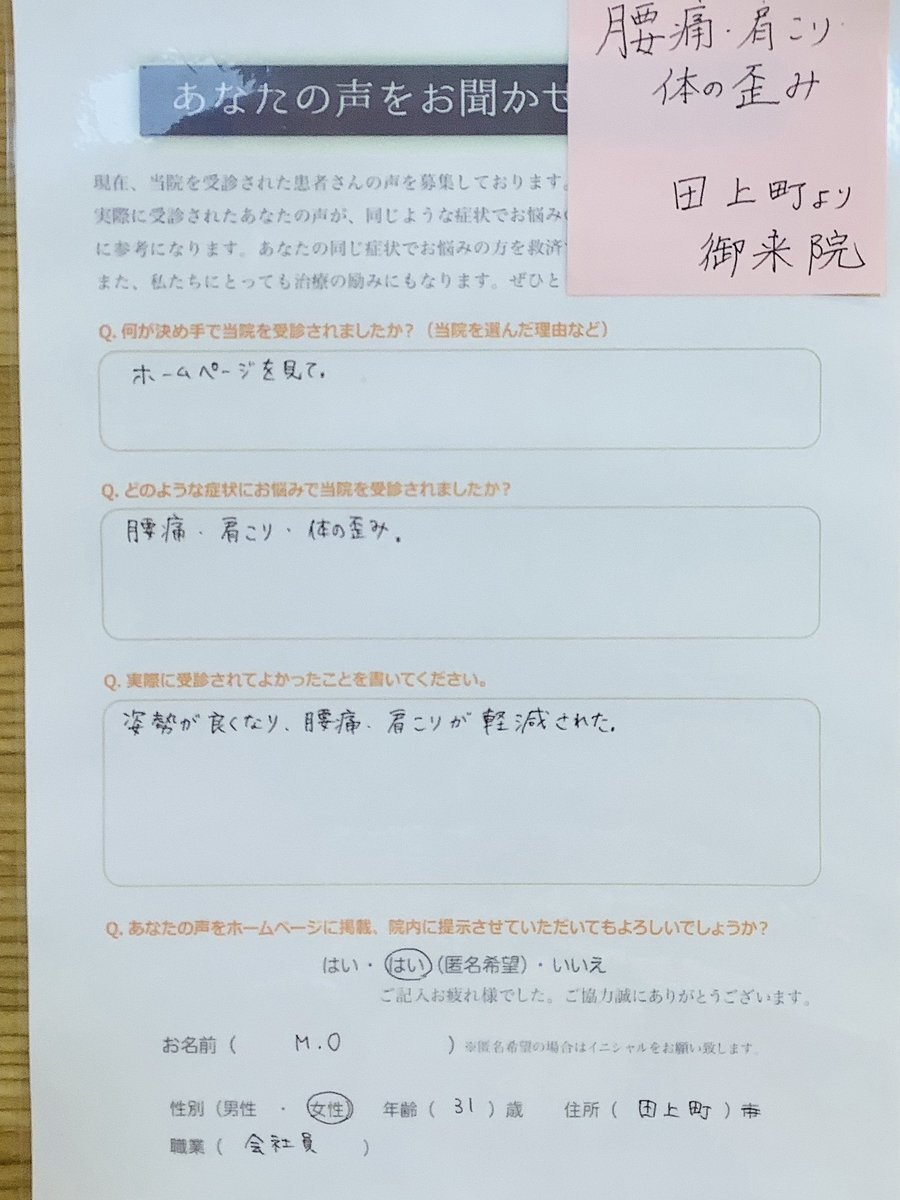 腰痛・肩こり・
体の歪み
田上町より
御来院
あなたの声をお聞かせ
現在、当院を受診された患者さんの声を募集しております。
実際に受診されたあなたの声が、同じような症状でお悩み
に参考になります。あなたの同じ症状でお悩みの方を救済
また、私たちにとっても治療の励みにもなります。ぜひと
Q. 何が決め手で当院を受診されましたか？（当院を選んだ理由など）
ホームページを見て。
Q. どのような症状にお悩みで当院を受診されましたか？
腰痛・肩こり・体の歪み。
Q. 実際に受診されてよかったことを書いてください。
姿勢が良くなり、腰痛・肩こりが軽減された。
Q. あなたの声をホームページに掲載、院内に提示させていただいてもよろしいでしょうか？
はい・はい（匿名希望）・いいえ
ご記入お疲れ様でした。ご協力誠にありがとうございます。
お名前（ M.O ）※匿名希望の場合はイニシャルをお願い致します。
性別（男性 ・ 女性） 年齢（ 31 ）歳 住所（ 田上町 ）市
職業（ 会社員 ）